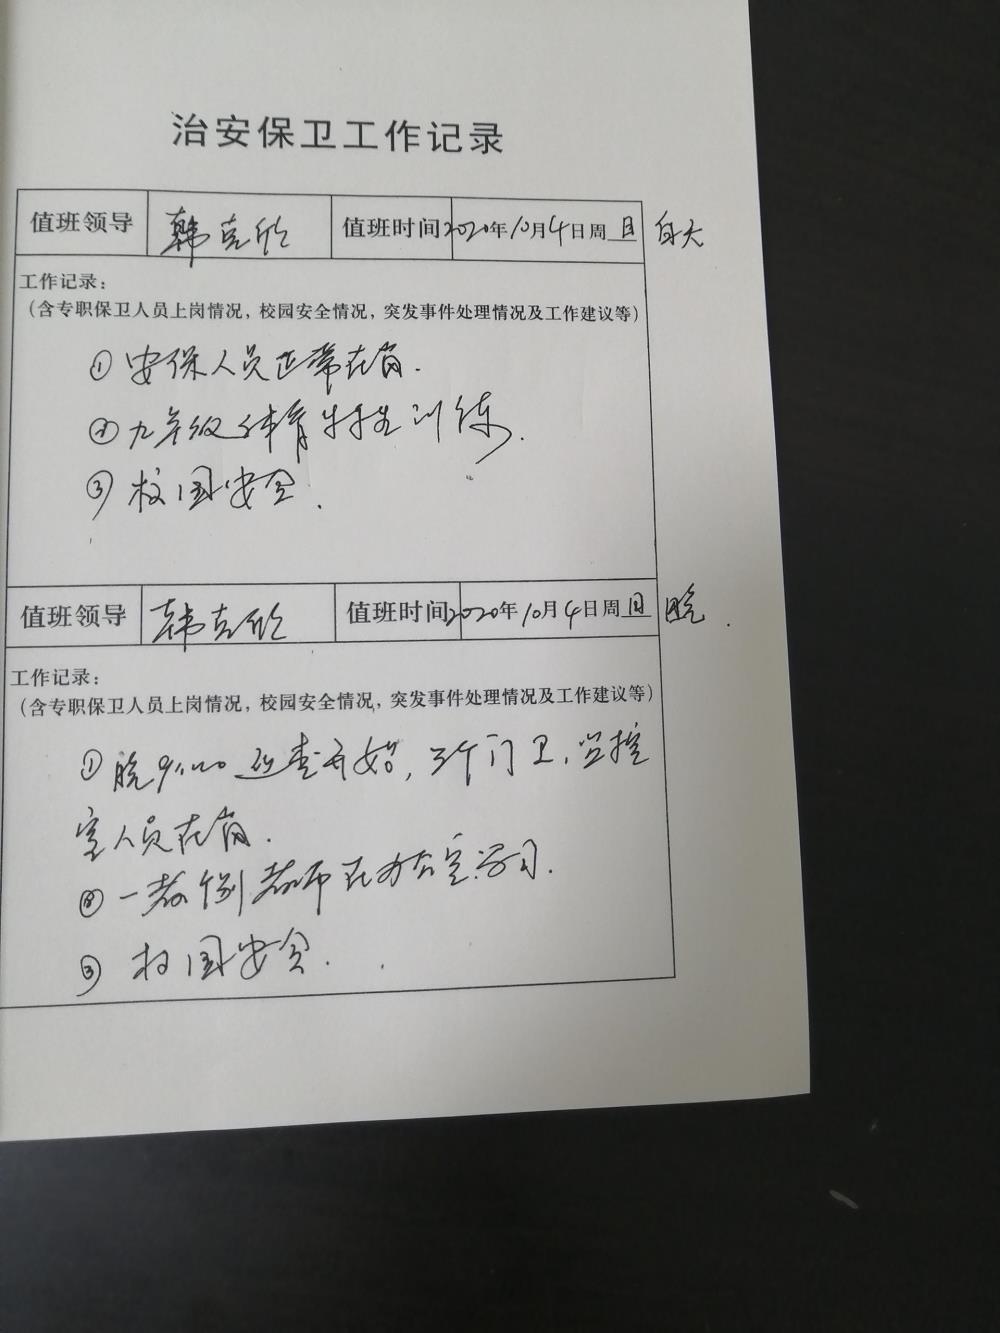 治安保卫工作记录
值班领导 韩克欣 值班时间 2020年10月4日周日 白天
工作记录：
（含专职保卫人员上岗情况，校园安全情况，突发事件处理情况及工作建议等）
①安保人员正常在岗.
②九年级体育特生训练.
③校园安全.
值班领导 韩克欣 值班时间 2020年10月4日周日 晚.
工作记录：
（含专职保卫人员上岗情况，校园安全情况，突发事件处理情况及工作建议等）
①晚9:00巡查开始，三个门卫，监控
室人员在岗.
②一教个别教师在办公室学习.
③校园安全.